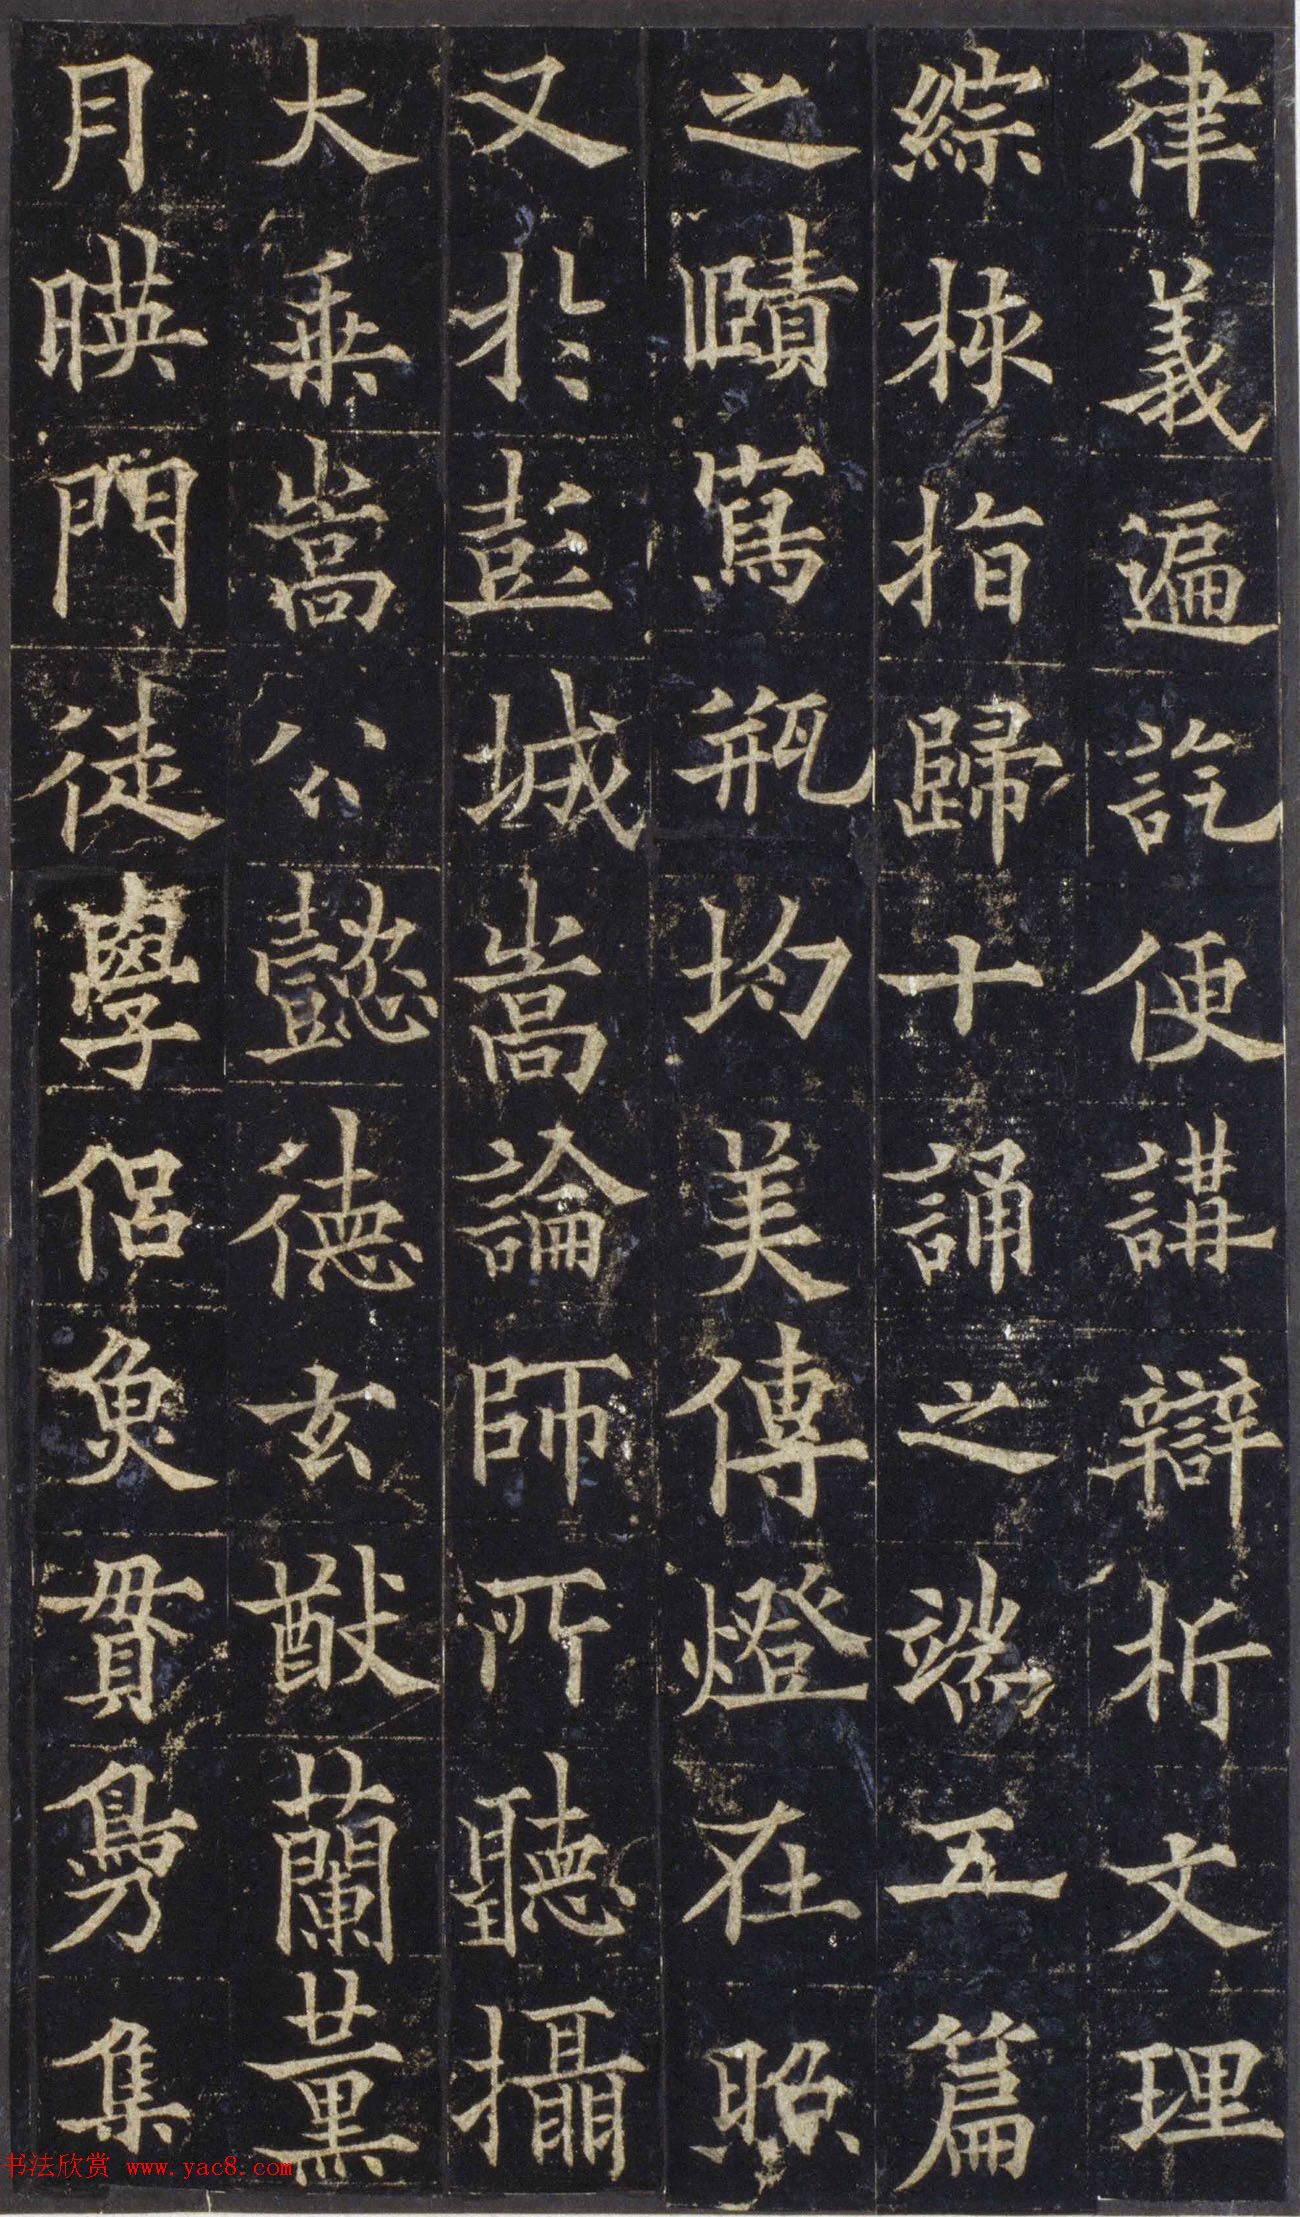 律義遍訖便講辯析文理
綜棶指歸十誦之端五篇
之賾寫瓶均美傳燈在照
又於彭城嵩論師所聽攝
大乗嵩公懿德玄猷蘭薫
月暎門徒學侣魚貫鳧集
书法欣赏 www.yac8.com